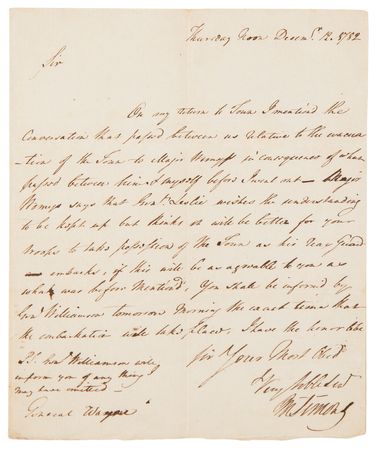 Thursday Noon Decemr. 12. 1782
Sir
On my return to Town I mentioned the
Conversation that passed between us relative to the evacua
-tion of the Town to Major Wemyss in consequence of what
passed between him & myself before I went out — Major
Wemyss says that Genl. Leslie wishes the understanding
to be kept up but thinks it will be better for your
troops to take possession of the Town as his rear Guard
— embarks, if this will be as agreable to you as
what was before Mentiond. You shall be informd by
Genl Williamson tomorrow Morning the exact time that
the embarkation will take place, I have the honor to be
Sir Your Most Obedt.
Very Hble Servt.
M Simons
P.S. Genl. Williamson will
inform you of any thing I
may have omitted —
General Wayne